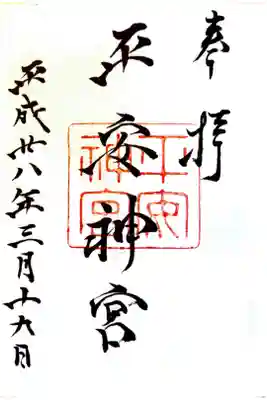 奉拝
平安神宮
平安神宮
平成廿八年三月十六日